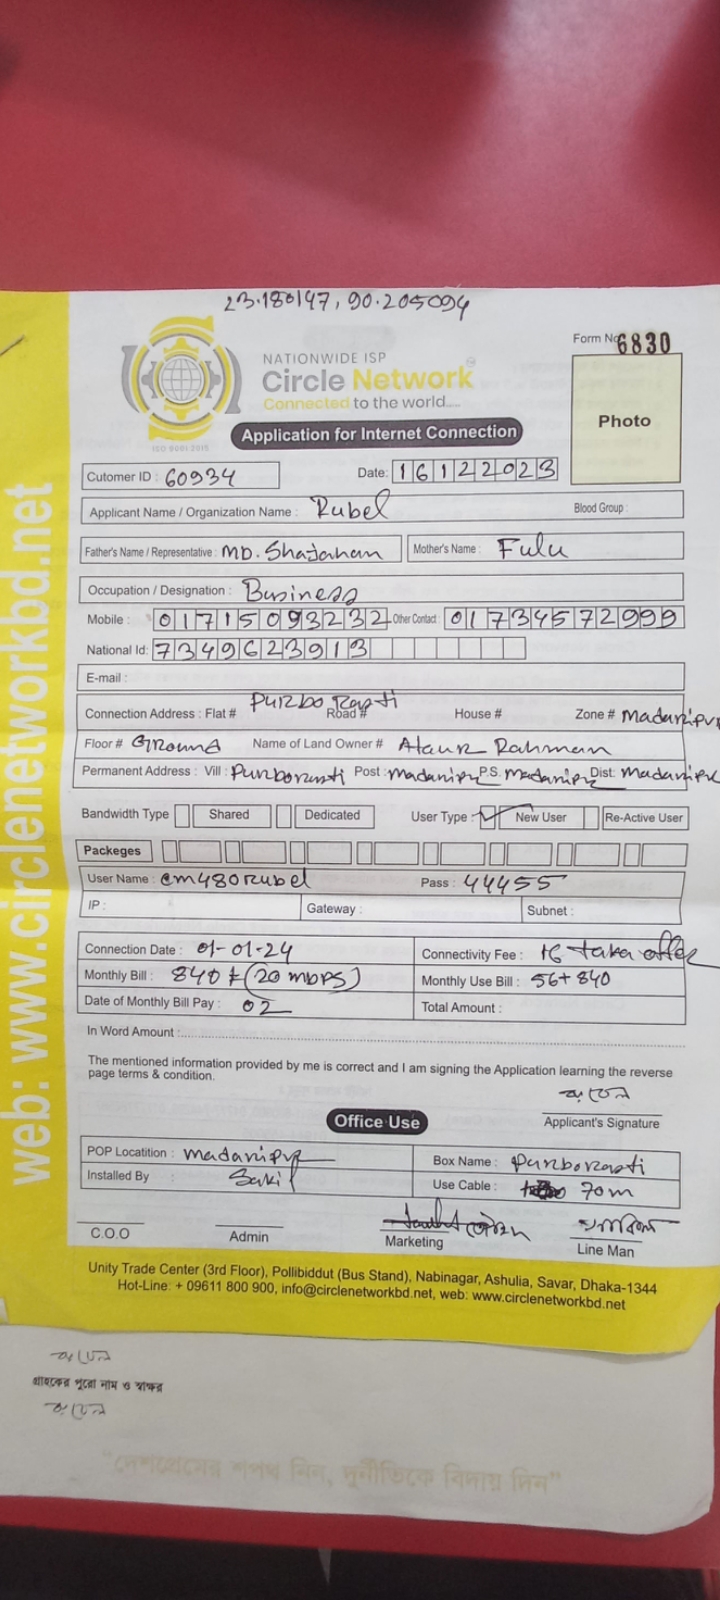 23.180147, 90.205094
Form No 6830
NATIONWIDE ISP
Circle Network
Connected to the world....
ISO 9001:2015
Photo
Application for Internet Connection
Cutomer ID : 60934 Date: 16122023
Applicant Name / Organization Name : Rubel Blood Group :
Father's Name / Representative : MD. Shajahan Mother's Name : Fulu
Occupation / Designation : Business
Mobile : 01715093232 Other Contact : 01734572999
National Id: 7349623913
E-mail :
Connection Address : Flat # Purbo Rasti Road # House # Zone # Madaripur
Floor # Ground Name of Land Owner # Ataur Rahman
Permanent Address : Vill : Purborasti Post : Madaripur P.S. Madaripur Dist: Madaripur
Bandwidth Type Shared Dedicated User Type : New User Re-Active User
Packeges
User Name : cm480rubel Pass : 44455
IP : Gateway : Subnet :
Connection Date : 01-01-24 Connectivity Fee : 16 taka offer
Monthly Bill : 840 (20 mbps) Monthly Use Bill : 56+840
Date of Monthly Bill Pay : 02 Total Amount :
In Word Amount :
The mentioned information provided by me is correct and I am signing the Application learning the reverse
page terms & condition.
Applicant's Signature
Office Use
POP Locatition : Madaripur Box Name : Purborasti
Installed By : Sakil Use Cable : 70m
C.O.O Admin Marketing Line Man
Unity Trade Center (3rd Floor), Pollibiddut (Bus Stand), Nabinagar, Ashulia, Savar, Dhaka-1344
Hot-Line: + 09611 800 900, info@circlenetworkbd.net, web: www.circlenetworkbd.net
web: www.circlenetworkbd.net
গ্রাহকের পুরো নাম ও স্বাক্ষর
"দেশপ্রেমের শপথ নিন, দুর্নীতিকে বিদায় দিন"